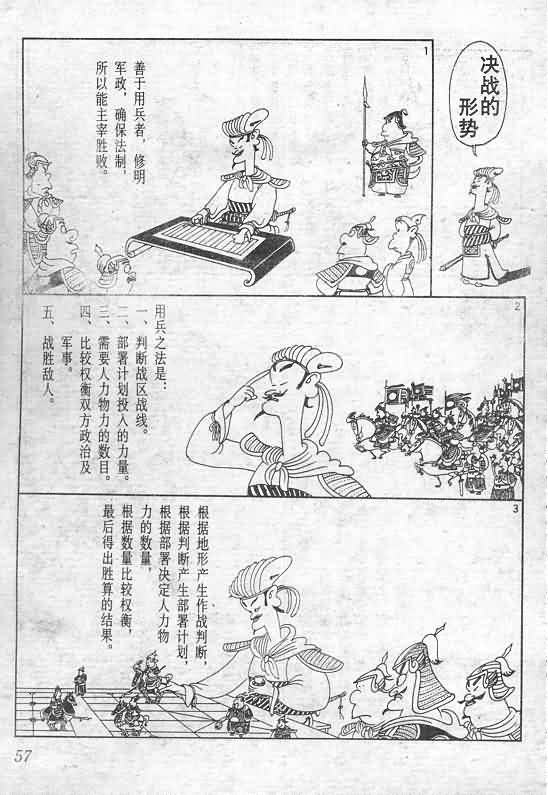 决战的
形势
1
善于用兵者，修明
军政，确保法制，
所以能主宰胜败。
2
用兵之法是：
一、判断战区战线。
二、部署计划投入的力量。
三、需要人力物力的数目。
四、比较权衡双方政治及
军事。
五、战胜敌人。
3
根据地形产生作战判断，
根据判断产生部署计划，
根据部署决定人力物
力的数量，
根据数量比较权衡，
最后得出胜算的结果。
57